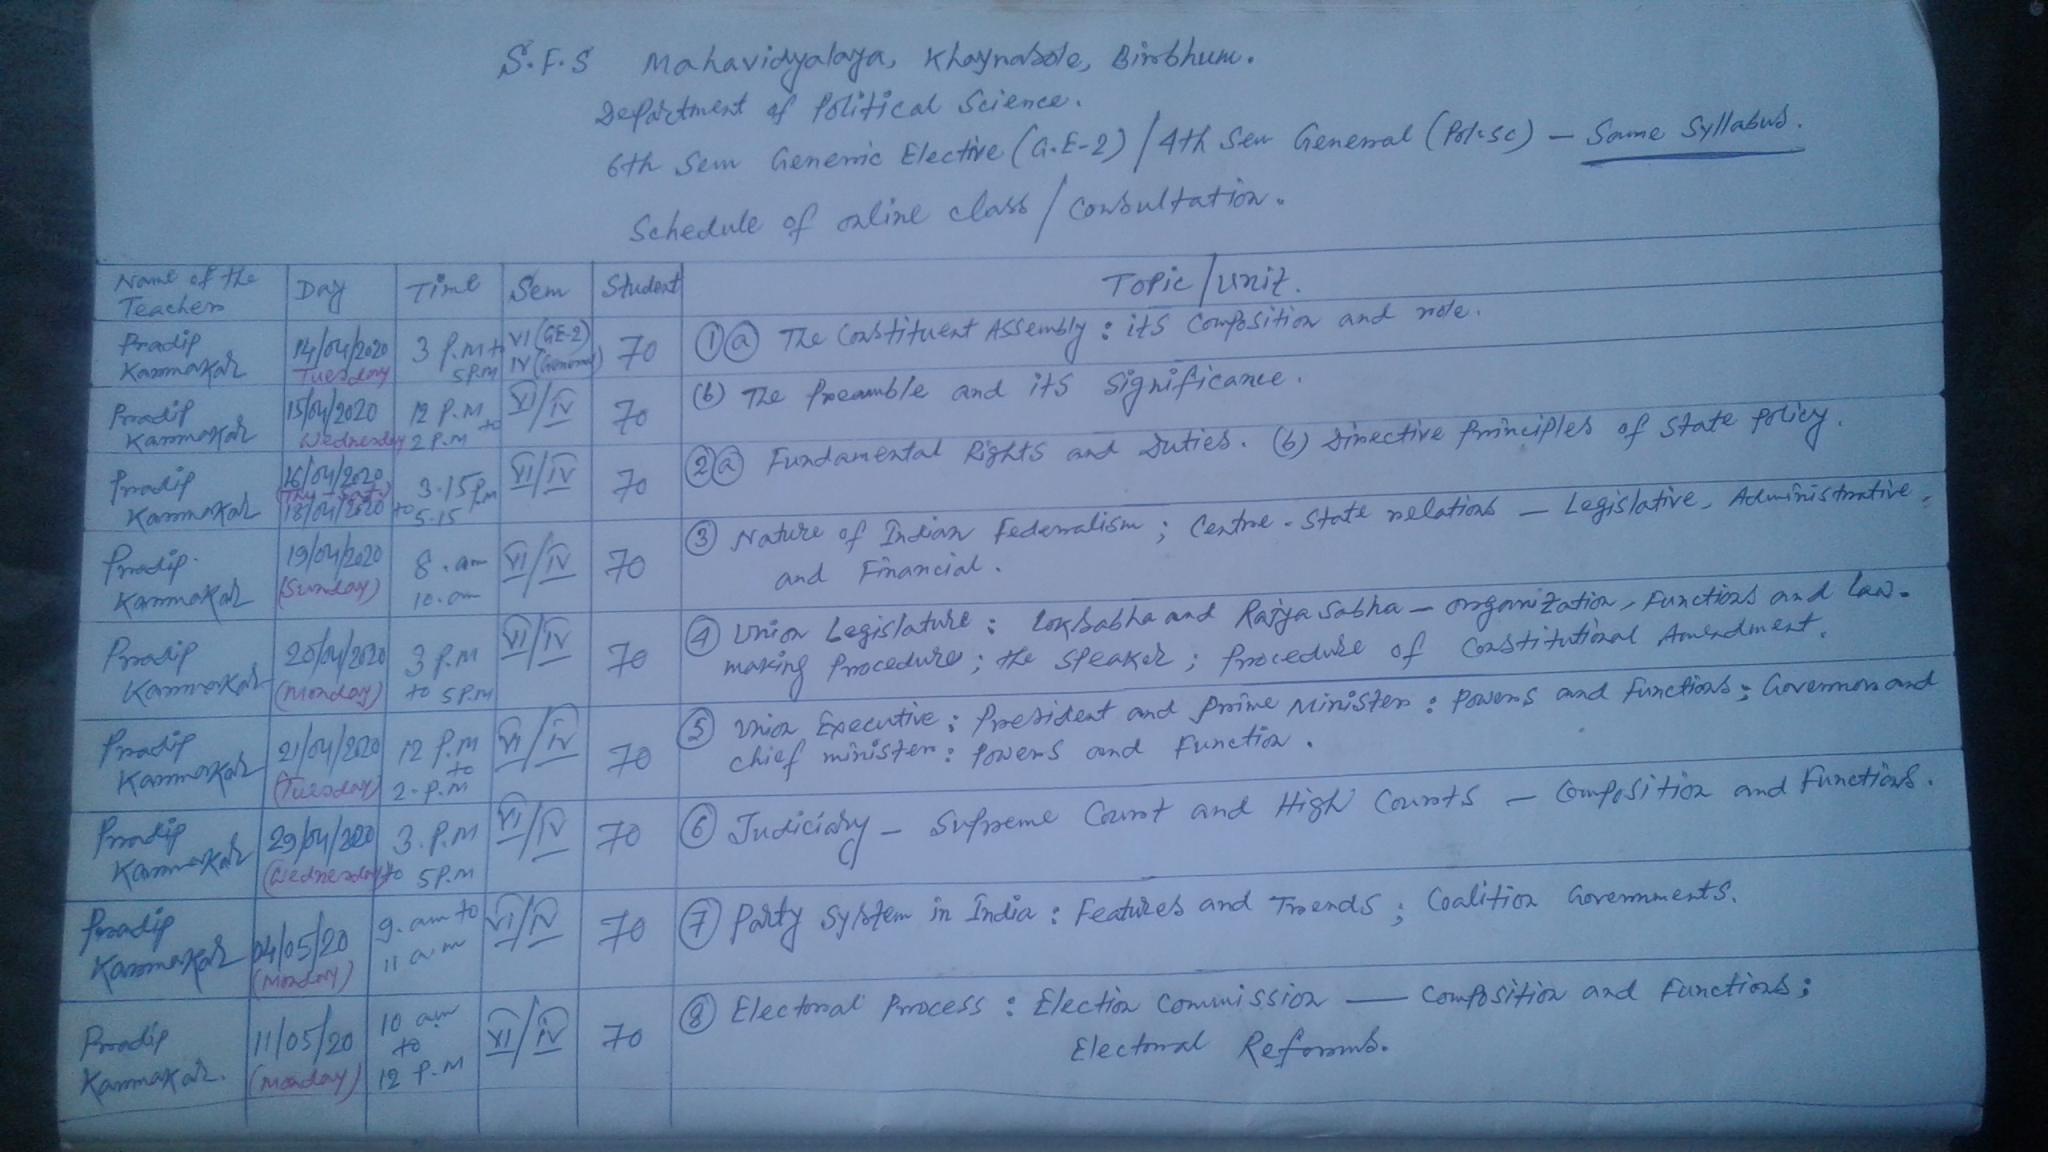 S.F.S Mahavidyalaya, Khaynasole, Birbhum.
Department of Political Science.
6th Sem Generic Elective (G.E-2) / 4th Sem General (Pol.Sc) – Same Syllabus.
Schedule of online class / Consultation.
Name of the Teacher Day Time Sem Student Topic / Unit.
Pradip Karmakar 14/04/2020 Tuesday 3 P.m to 5 P.m VI (GE-2) IV (General) 70 1 a The Constituent Assembly : its Composition and role.
Pradip Karmakar 15/04/2020 Wednesday 12 P.M to 2 P.M VI/IV 70 (b) The Preamble and its Significance.
Pradip Karmakar 16/04/2020 (Thu - Sat) 18/04/2020 3.15 P.m to 5.15 VI/IV 70 2 a Fundamental Rights and Duties. (b) Directive Principles of State Policy.
Pradip Karmakar 19/04/2020 (Sunday) 8.am 10.am VI/IV 70 3 Nature of Indian Federalism ; Centre-State relations – Legislative, Administrative,
and Financial.
Pradip Karmakar 20/04/2020 (Monday) 3 P.M to 5 P.M VI/IV 70 4 Union Legislature : Loksabha and Rajya Sabha – organization, Functions and law-
making Procedure ; the Speaker ; Procedure of Constitutional Amendment.
Pradip Karmakar 21/04/2020 (Tuesday) 12 P.M to 2.P.M VI/IV 70 5 Union Executive : President and Prime Minister : Powers and Functions ; Governor and
chief minister : Powers and Function.
Pradip Karmakar 29/04/2020 (Wednesday) 3.P.M to 5P.M VI/IV 70 6 Judiciary – Supreme Court and High Courts – Composition and Functions.
Pradip Karmakar 04/05/20 (Monday) 9.am to 11 am VI/IV 70 7 Party System in India : Features and Trends ; Coalition Governments.
Pradip Karmakar. 11/05/20 (Monday) 10 am to 12 P.M VI/IV 70 8 Electoral Process : Election Commission — Composition and Functions ;
Electoral Reforms.